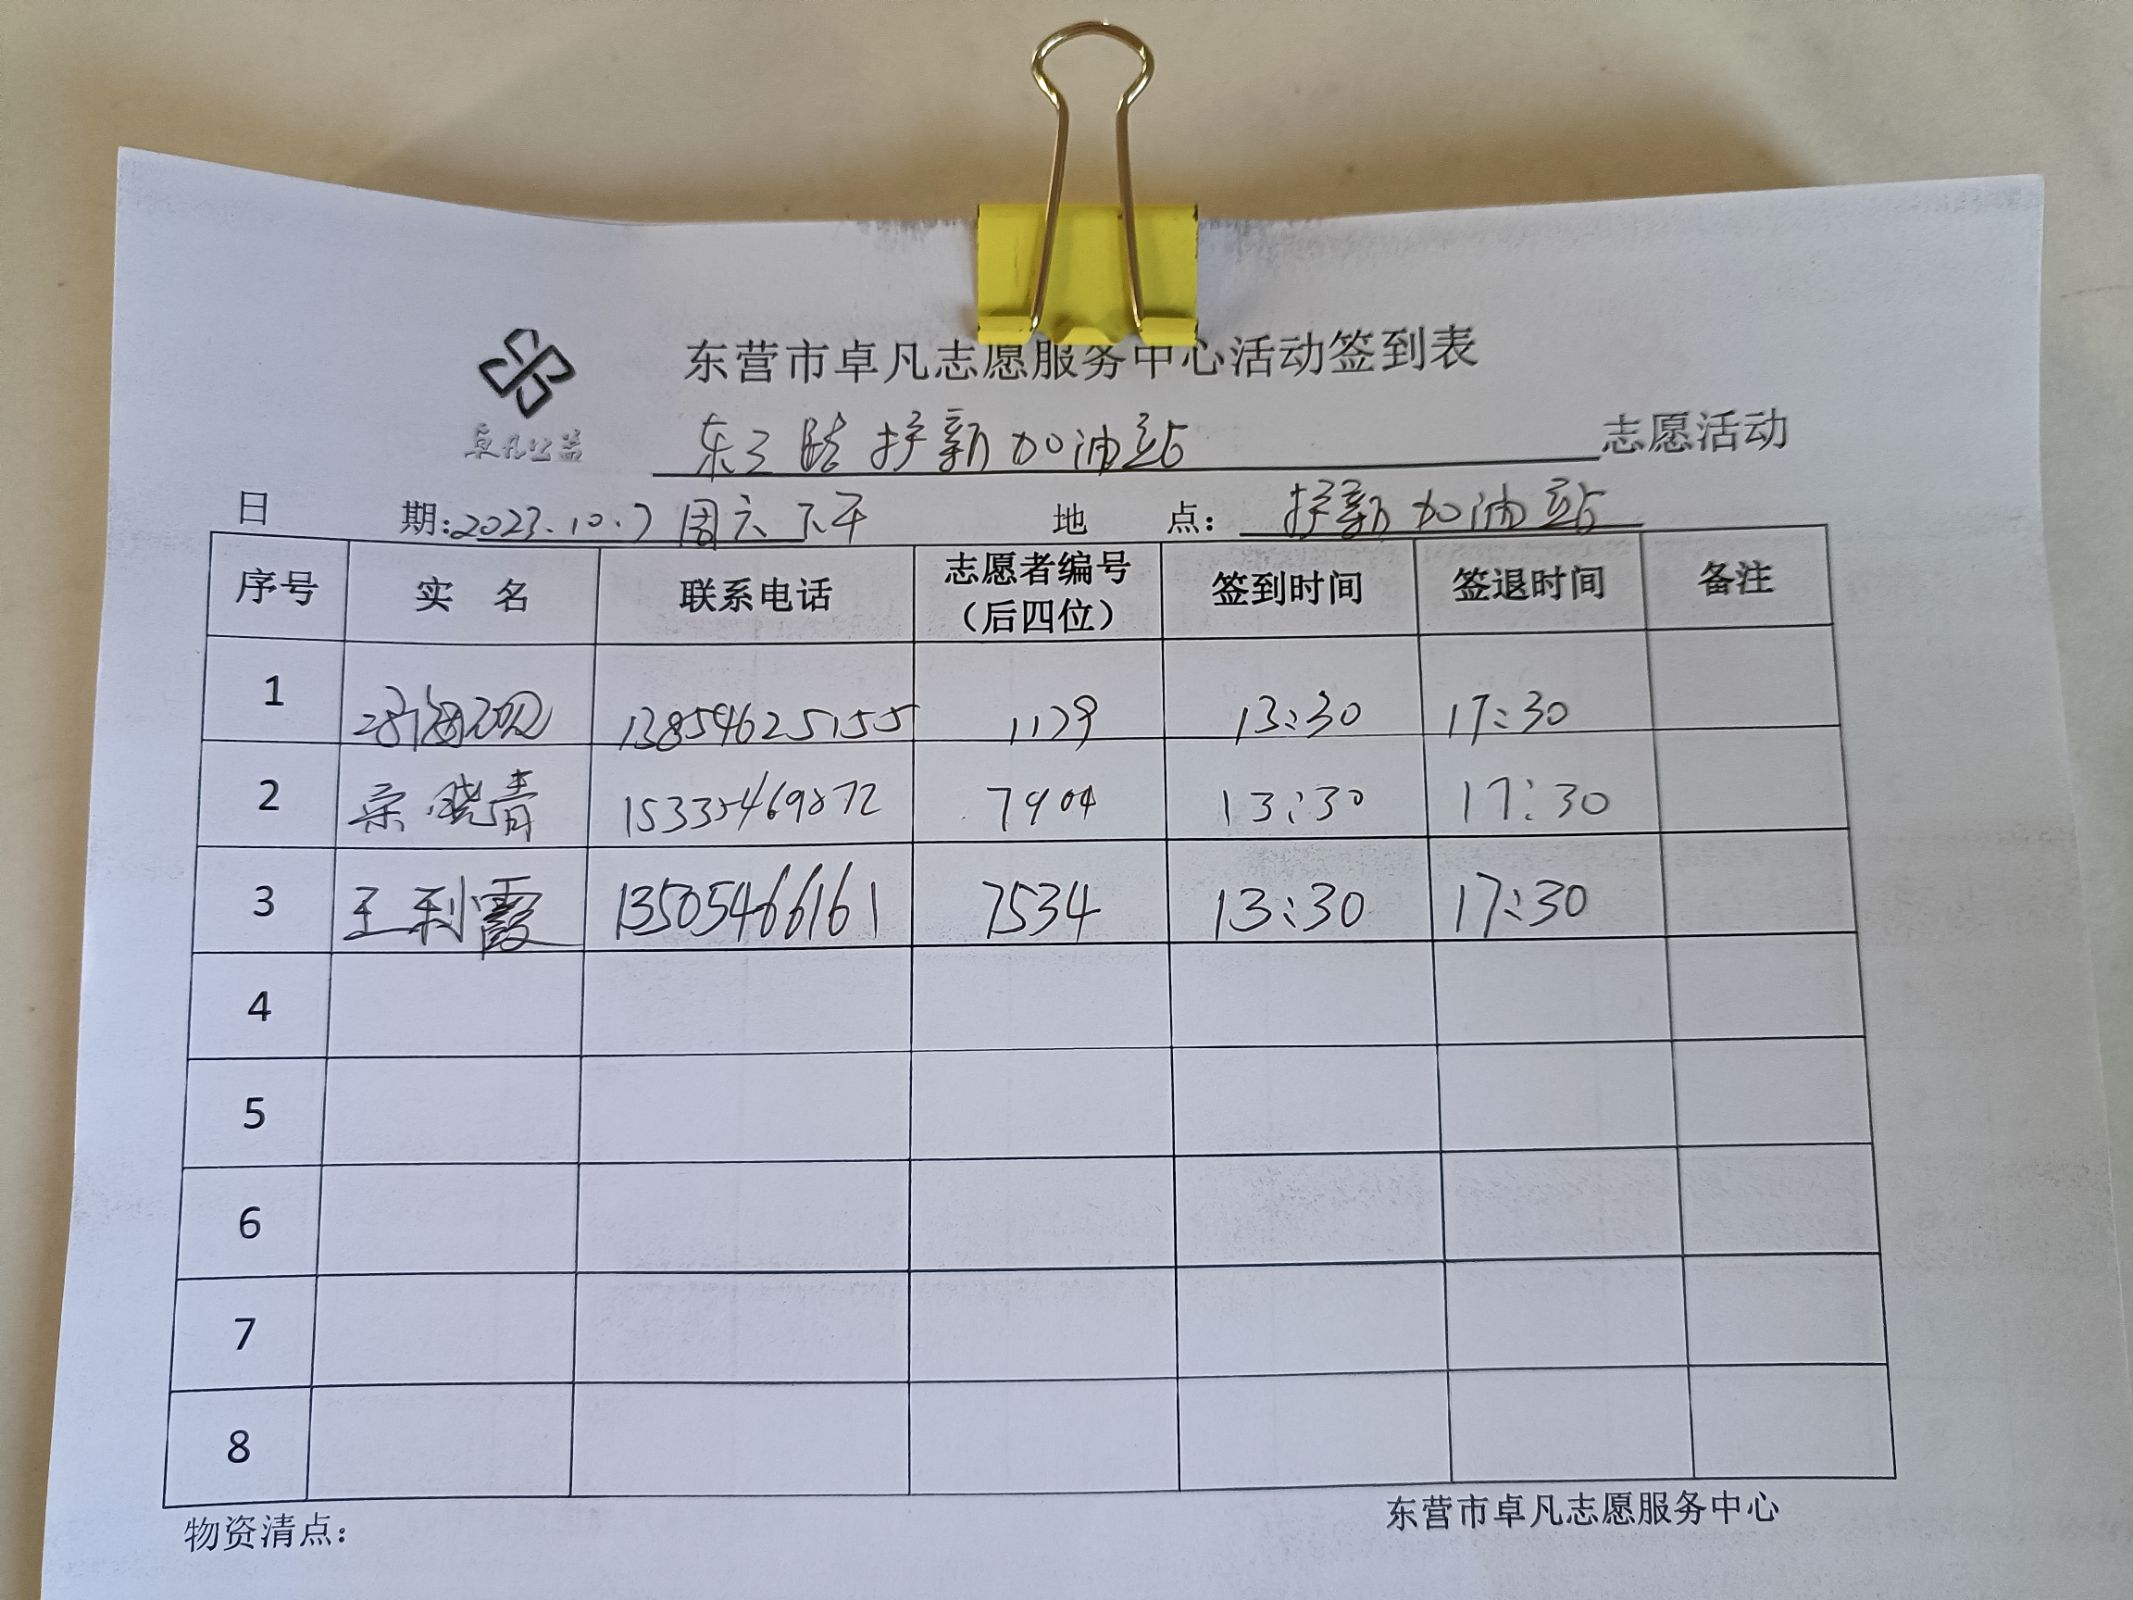 东营市卓凡志愿服务中心活动签到表
卓凡公益
东三路护新加油站 志愿活动
日 期:2023.10.7 周六下午 地 点: 护新加油站
序号 实 名 联系电话 志愿者编号（后四位） 签到时间 签退时间 备注
1 13854625155 1179 13:30 17:30
2 宗晓青 15335469872 7904 13:30 17:30
3 王利霞 13505466161 7534 13:30 17:30
4
5
6
7
8
东营市卓凡志愿服务中心
物资清点：